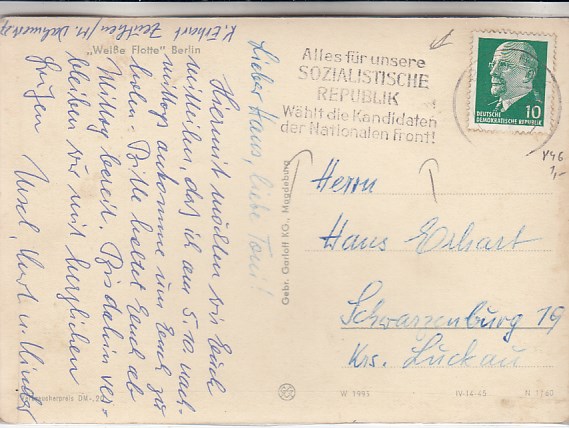 K. Erhart Zeuthen/
"Weiße Flotte" Berlin
Lieber Hans, liebe Toni!
Hiermit möchten wir Euch
mitteilen, daß ich am 5.10. nach-
mittags ankomme um Euch zu
holen. Bitte haltet Euch ab
Mittag bereit. Bis dahin ver-
bleiben wir mit herzlichen
Grüßen Kurt u. Kinder
Verbraucherpreis DM -,20
Gebr. Garloff KG., Magdeburg
Alles für unsere
SOZIALISTISCHE
REPUBLIK
Wählt die Kandidaten
der Nationalen Front!
10
DEUTSCHE
DEMOKRATISCHE REPUBLIK
846
1,-
Herrn
Hans Erhart
Schwarzenburg 19
Krs. Luckau
W 1995
IV-14-45
N 1760